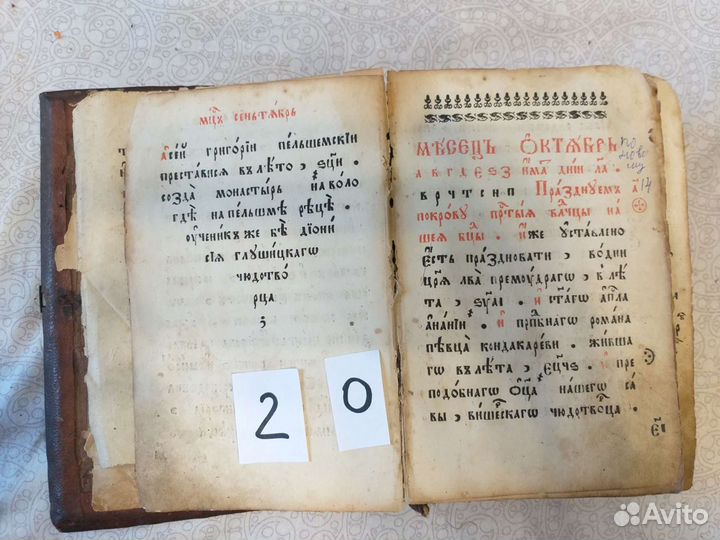 мц҃ъ сеньтѧбрь
А҆сей григорїи пельшемскїи
преставися в лѣто , ѕц҃и
созда монастырь на воло
гдѣ на пельшмѣ рецѣ .
ѹченик же бѣ дїони
сїя глꙋшицкагѡ
чюдотво
рца
МѢСЕЦЪ ОКТѦБРЬ
а в г д е ѕ з
в р ч т с н п Празднꙋемъ
покровꙋ прт҃ыя влчцы на
шея бц҃ы . иже ꙋставлено
есть праздновати , в дни
цр҃я лва премꙋдрагѡ , в лѣ
та , ѕꙋ҃аі . и ст҃агѡ ап҃ла
анании . и прпбнагѡ романа
пѣвца кондакареви . живша
гѡ в лѣта , и пре
подобнагѡ оц҃а нашегѡ са
вы , вишескагѡ чюдотвоца .
по
ново
му
14
2
0
Avito